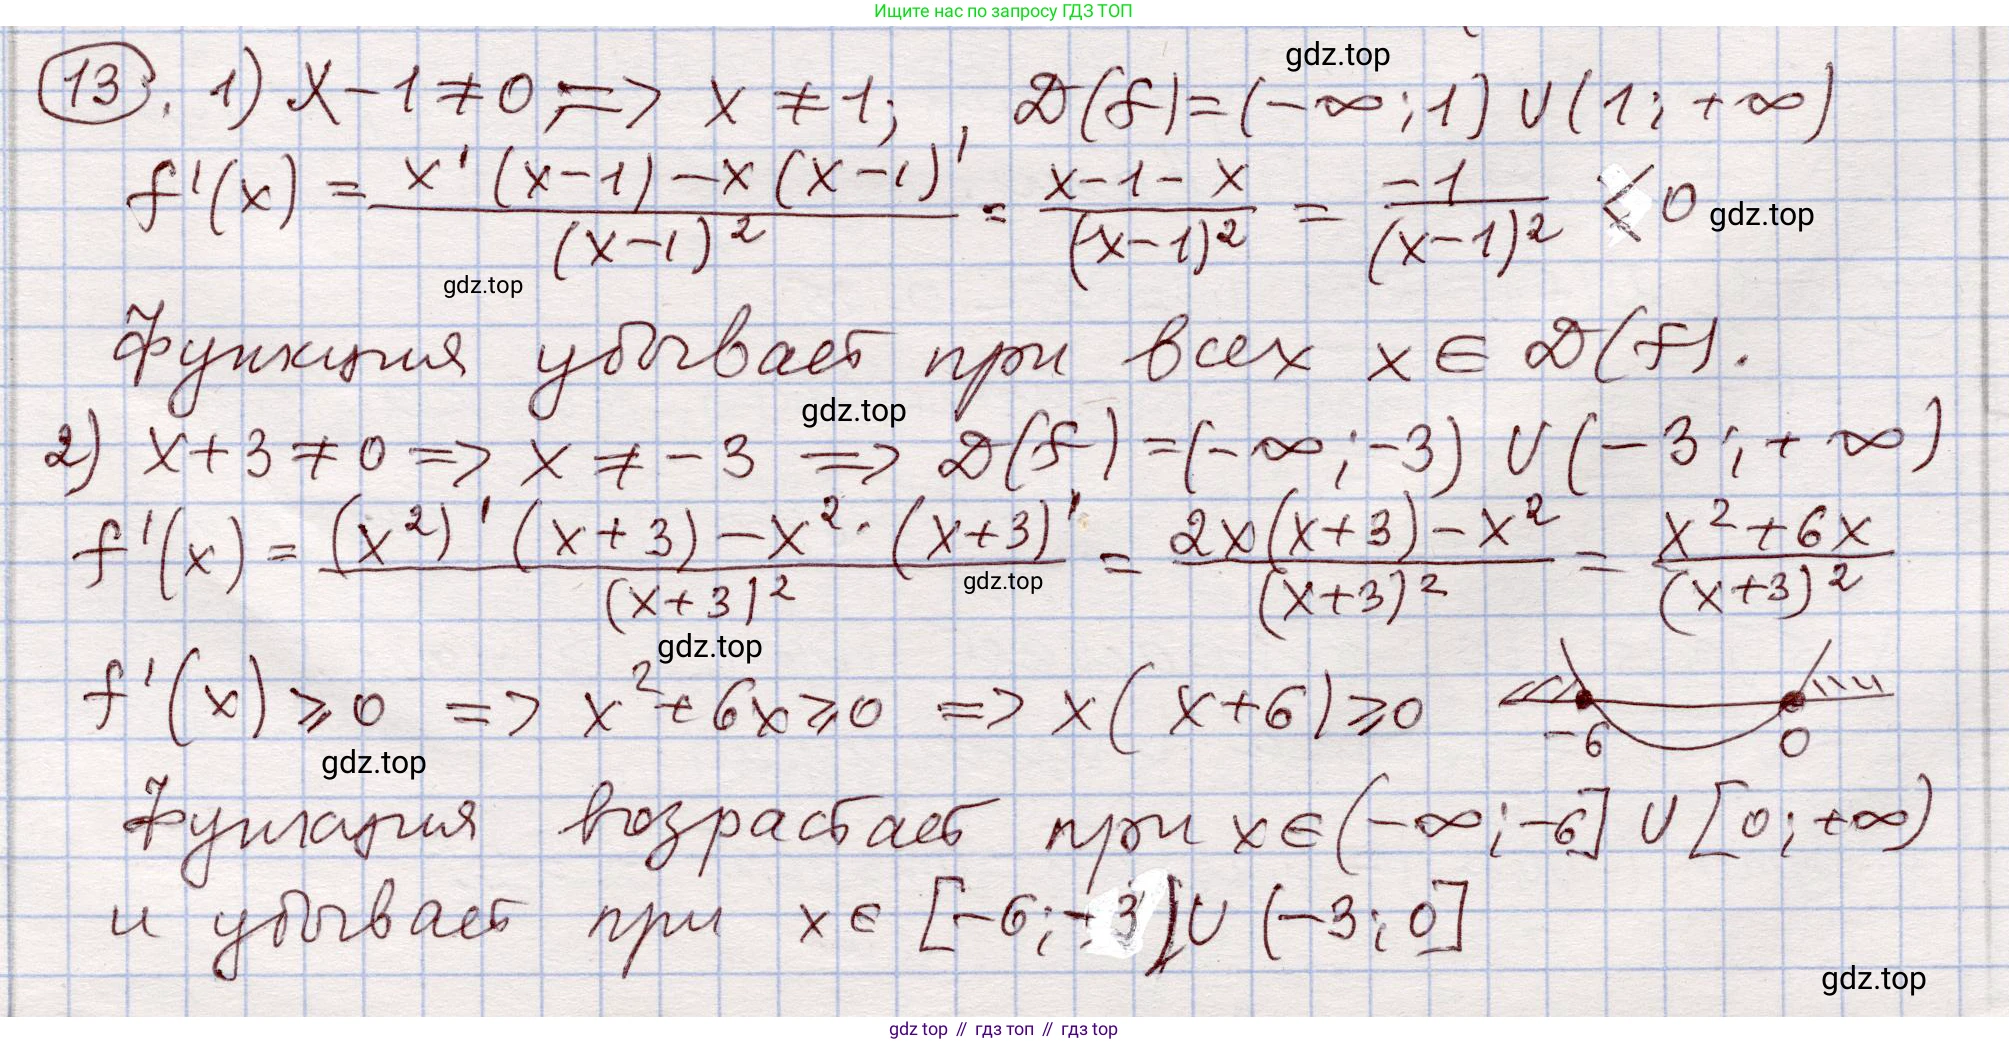 Ищите нас по запросу ГДЗ ТОП
gdz.top
13. 1) x-1≠0; => x≠1; D(f)=(-∞;1)∪(1;+∞)
f'(x) = (x'(x-1)-x(x-1)')/(x-1)² = (x-1-x)/(x-1)² = -1/(x-1)² < 0
gdz.top
gdz.top
Функция убывает при всех x∈D(f).
gdz.top
2) x+3≠0 => x≠-3 => D(f)=(-∞;-3)∪(-3;+∞)
f'(x) = ((x²)'(x+3)-x²·(x+3)')/(x+3)² = (2x(x+3)-x²)/(x+3)² = (x²+6x)/(x+3)²
gdz.top
gdz.top
f'(x)⩾0 => x²+6x⩾0 => x(x+6)⩾0
-6 0
gdz.top
Функция возрастает при x∈(-∞;-6]∪[0;+∞)
и убывает при x∈[-6;-3)∪(-3;0]
gdz.top
gdz top // гдз топ // гдз top